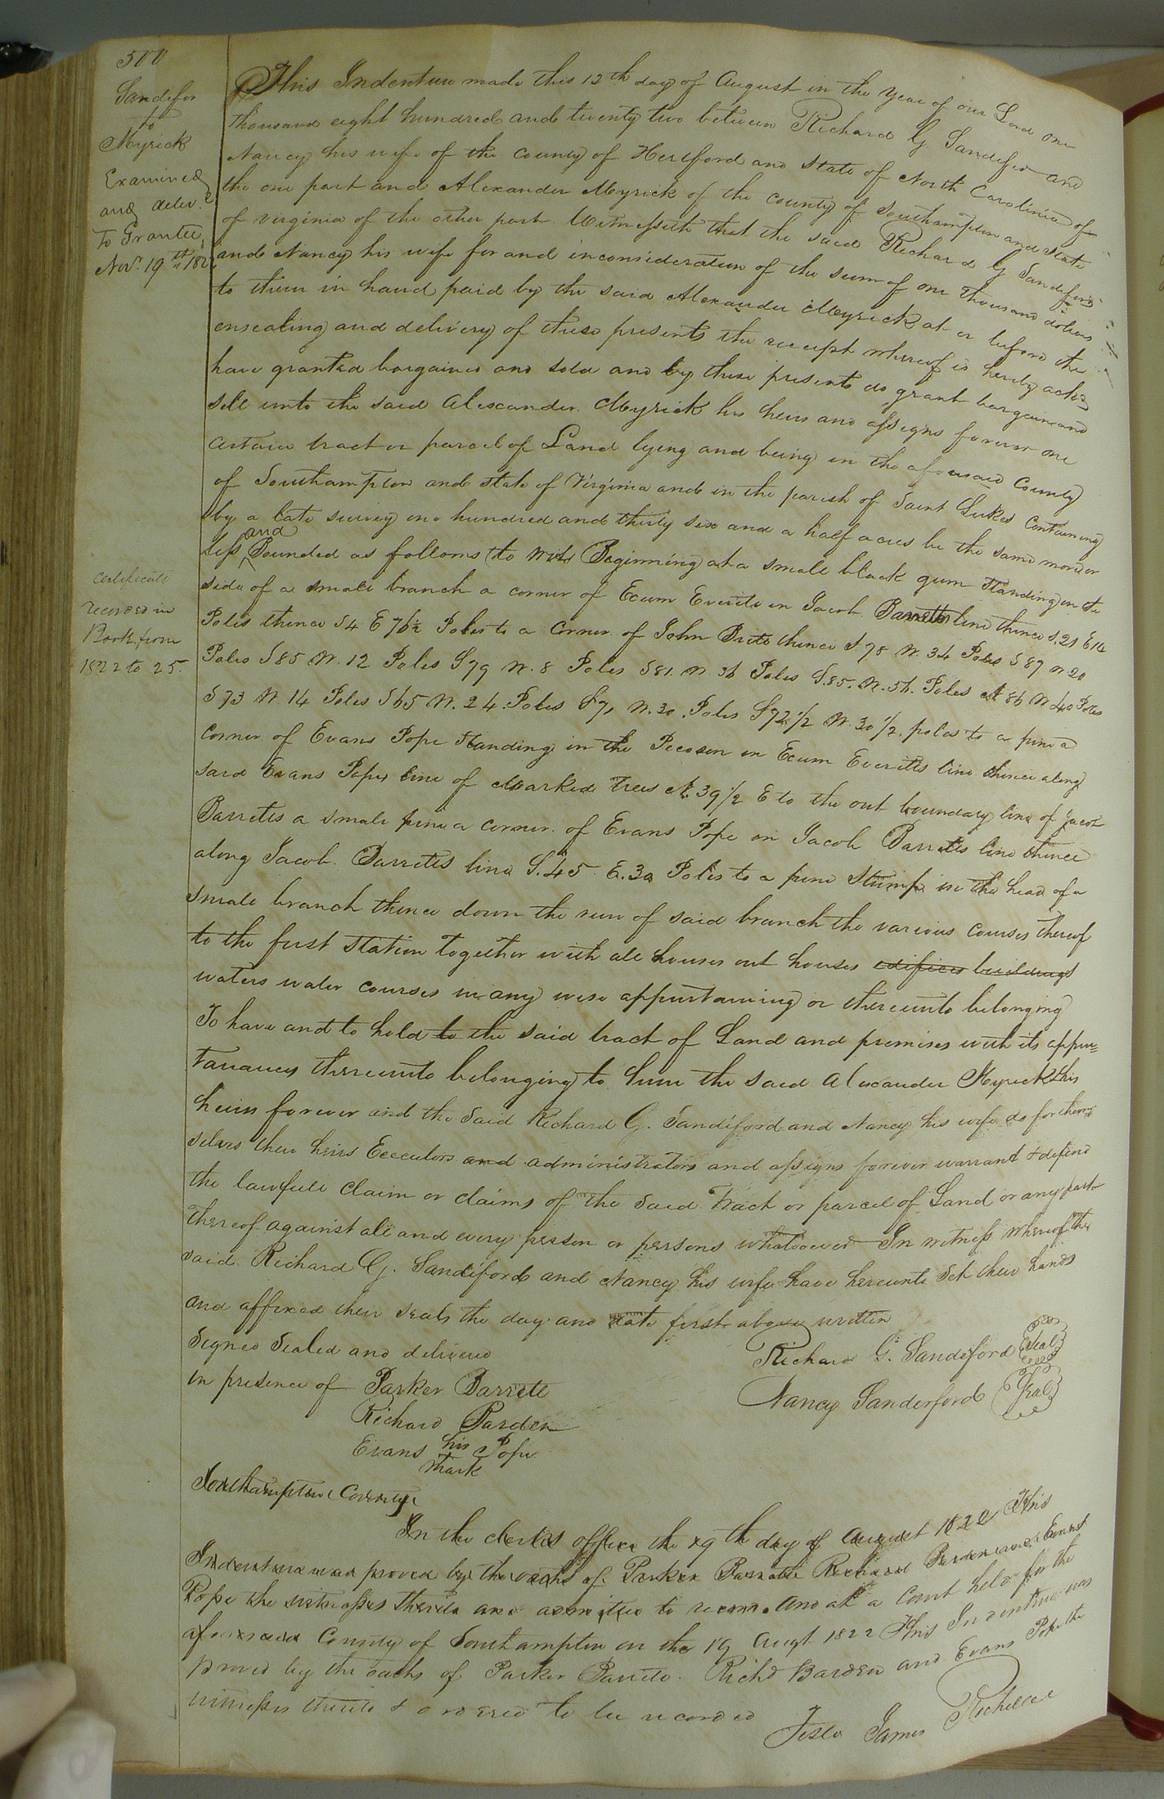 500
Sandifer
to
Myrick
Examined
and deliv.d
to Grantee
Nov.r 19th 182
This Indenture made this 12th day of August in the year of our Lord one
thousand eight hundred and twenty two between Richard G Sandifer and
Nancy his wife of the county of Hertford and State of North Carolina of
the one part and Alexander Myrick of the county of Southampton and State
of virginia of the other part Witnesseth that the said Richard G Sandiford
and Nancy his wife for and inconsideration of the sum of one thousand dollars
to them in hand paid by the said Alexander Myrick at or before the
ensealing and delivery of these presents the receipt whereof is hereby ackd
have granted bargained and sold and by these presents do grant bargain and
sell unto the said Alexander Myrick his heirs and assigns forever one
certain tract or parcel of Land lying and being in the aforesaid County
of Southampton and State of Virginia and in the parish of Saint Lukes Containing
by a late survey one hundred and thirty six and a half acres be the same more or
less and Bounded as follows (to wit) Beginning at a small black gum standing on the
side of a small branch a corner of Exum Everitts in Jacob Barretts line thence S.21 E 14
Poles thence S4 E 76½ Poles to a Corner of John Brits thence S 78 W. 34 Poles S 87 W 20
Poles S85 W. 12 Poles S79 W. 8 Poles S81. W 36 Poles S.85. W. 56. Poles N 86 W 40 Poles
S73 W. 14 Poles S65 W. 24. Poles S71 W. 30. Poles S72½ W. 30½ poles to a pine a
Corner of Evans Pope standing in the Pecoson on Exum Everitts line thence along
said Evans Popes line of Marked Trees N. 39½ E to the out boundary line of Jacob
Barretts a small pine a corner of Evans Pope on Jacob Barretts line thence
along Jacob Barretts line S. 45 E. 32 Poles to a pine Stump in the head of a
small branch thence down the run of said branch the various courses thereof
to the first station together with all houses out houses edifices buildings
waters water courses in any wise appurtaining or thereunto belonging
To have and to hold to the said tract of Land and premises with its appur=
tanances thereunto belonging to him the said Alexander Myrick & his
heirs forever and the said Richard G. Sandiford and Nancy his wife do for them=
selves their heirs Executors and administrators and assigns forever warrant & defend
the lawfull Claim or claims of the said Tract or parcel of Land or any part
thereof against all and every person or persons whatsoever In witness whereof the
said Richard G. Sandiford and Nancy his wife have hereunto set their hands
and affixed their seals the day and date first above written
Signed Sealed and delivered
in presence of Parker Barrett
Richard Barden
Evans his mark Pope
Richard G. Sandeford Seal
Nancy Sanderford Seal
Certificate
recorded in
Book from
1822 to 25.
Southampton County
In the clerks office the 19th day of August 1822 This
Indenture was proved by the oaths of Parker Barrett Richard Barden and Evans
Pope the witnesses thereto and admitted to record. And at a Court held for the
aforesaid County of Southampton on the 19 Augt 1822 This Indenture was
proved by the oaths of Parker Barrett Richd Barden and Evans Pope the
witnesses thereto & ordered to be recorded
Teste James Rochelle